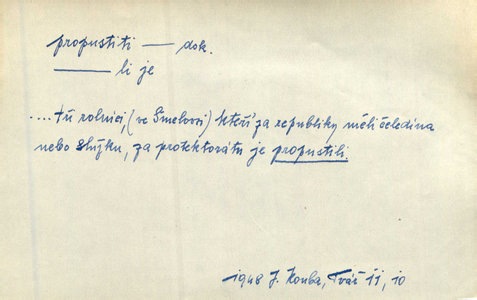 propustiti — dok.
——— li je
.... tři rolníci, (ve Šmelovsi) kteří za republiky měli čeledína
nebo služku, za protektorátu je propustili.
1948 J. Kouba, Tvář II, 10